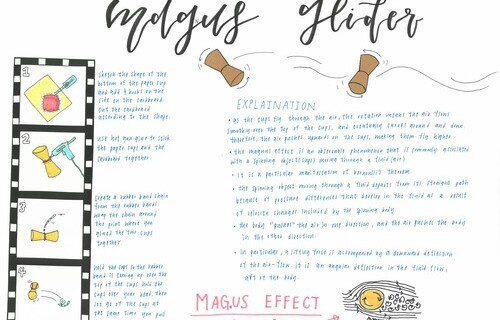 Magus Glider
1
sketch the shape of the
bottom of the paper cup
and add 4 hooks on the
side on the cardboard.
cut the cardboard
according to the shape.
2
use hot glue-glue to stick
the paper cups and the
cardboard together
3
create a rubber band chain
from the rubber band.
wrap the chain around
the point where you
glued the two cups
together.
4
hold the cups so the rubber
band is coming up over the
top of the cups. hold the
cups over your head, then
let go of the cups at
the same time you pull
EXPLAINATION
• as the cups fly through the air, the rotation means the air flows
smoothly over the top of the cups, and eventually curves around and down.
therefore, the air pushes upwards on the cups, making them fly higher
• the magnus effect is an observable phenomenon that is commonly associated
with a spinning object (cups) moving through a fluid (air)
• it is a particular manifestation of bernoulli's theorem
• the spinning object moving through a fluid departs from its straight path
because of pressure differences that develop in the fluid as a result
of velocity changes induced by the spinning body.
• the body "pushes" the air in one direction, and the air pushes the body
in the other direction.
• in particular, a lifting force is accompanied by a downward deflection
of the air-flow. it is an angular deflection in the fluid flow,
aft of the body.
MAGNUS EFFECT